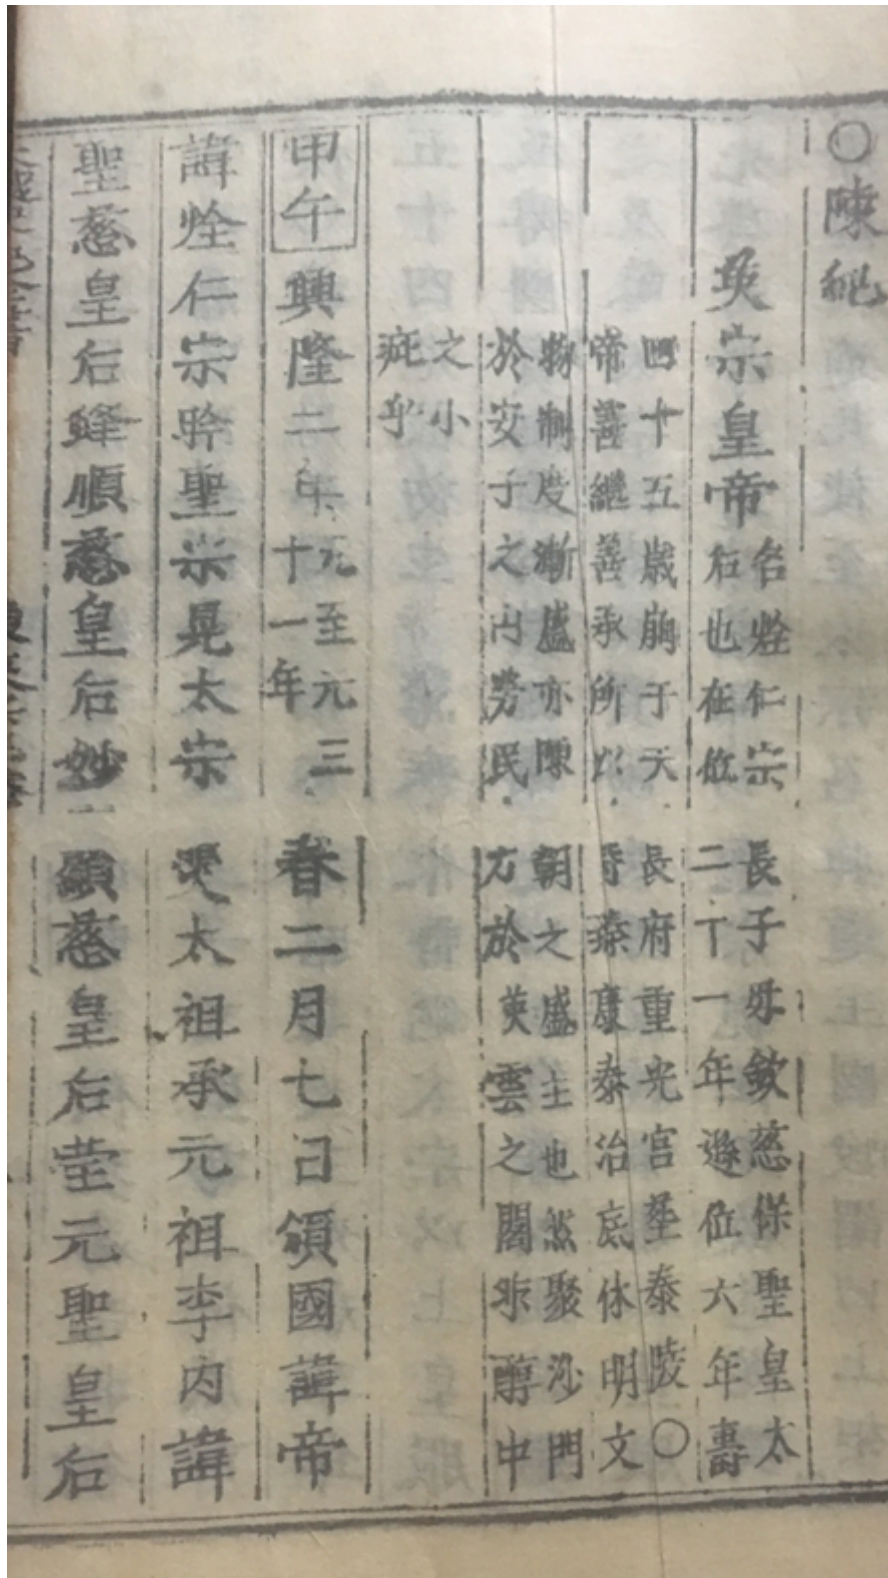 ○陳紀
英宗皇帝
名烇仁宗長子母欽慈保聖皇太
后也在位二十一年遜位六年壽
四十五歲崩于天長府重光宮塟泰陵○
帝善繼善承所以時臻康泰治底休明文
物制度漸盛亦陳朝之盛主也然聚沙門
於安子之山勞民力於英雲之閣非醇中
之小
疵乎
甲午興隆二年
元至元三
十一年
春二月七日頒國諱帝
諱烇仁宗昑聖宗晃太宗煚太祖承元祖李內諱
聖慈皇后蜂順慈皇后妙顯慈皇后瑩元聖皇后